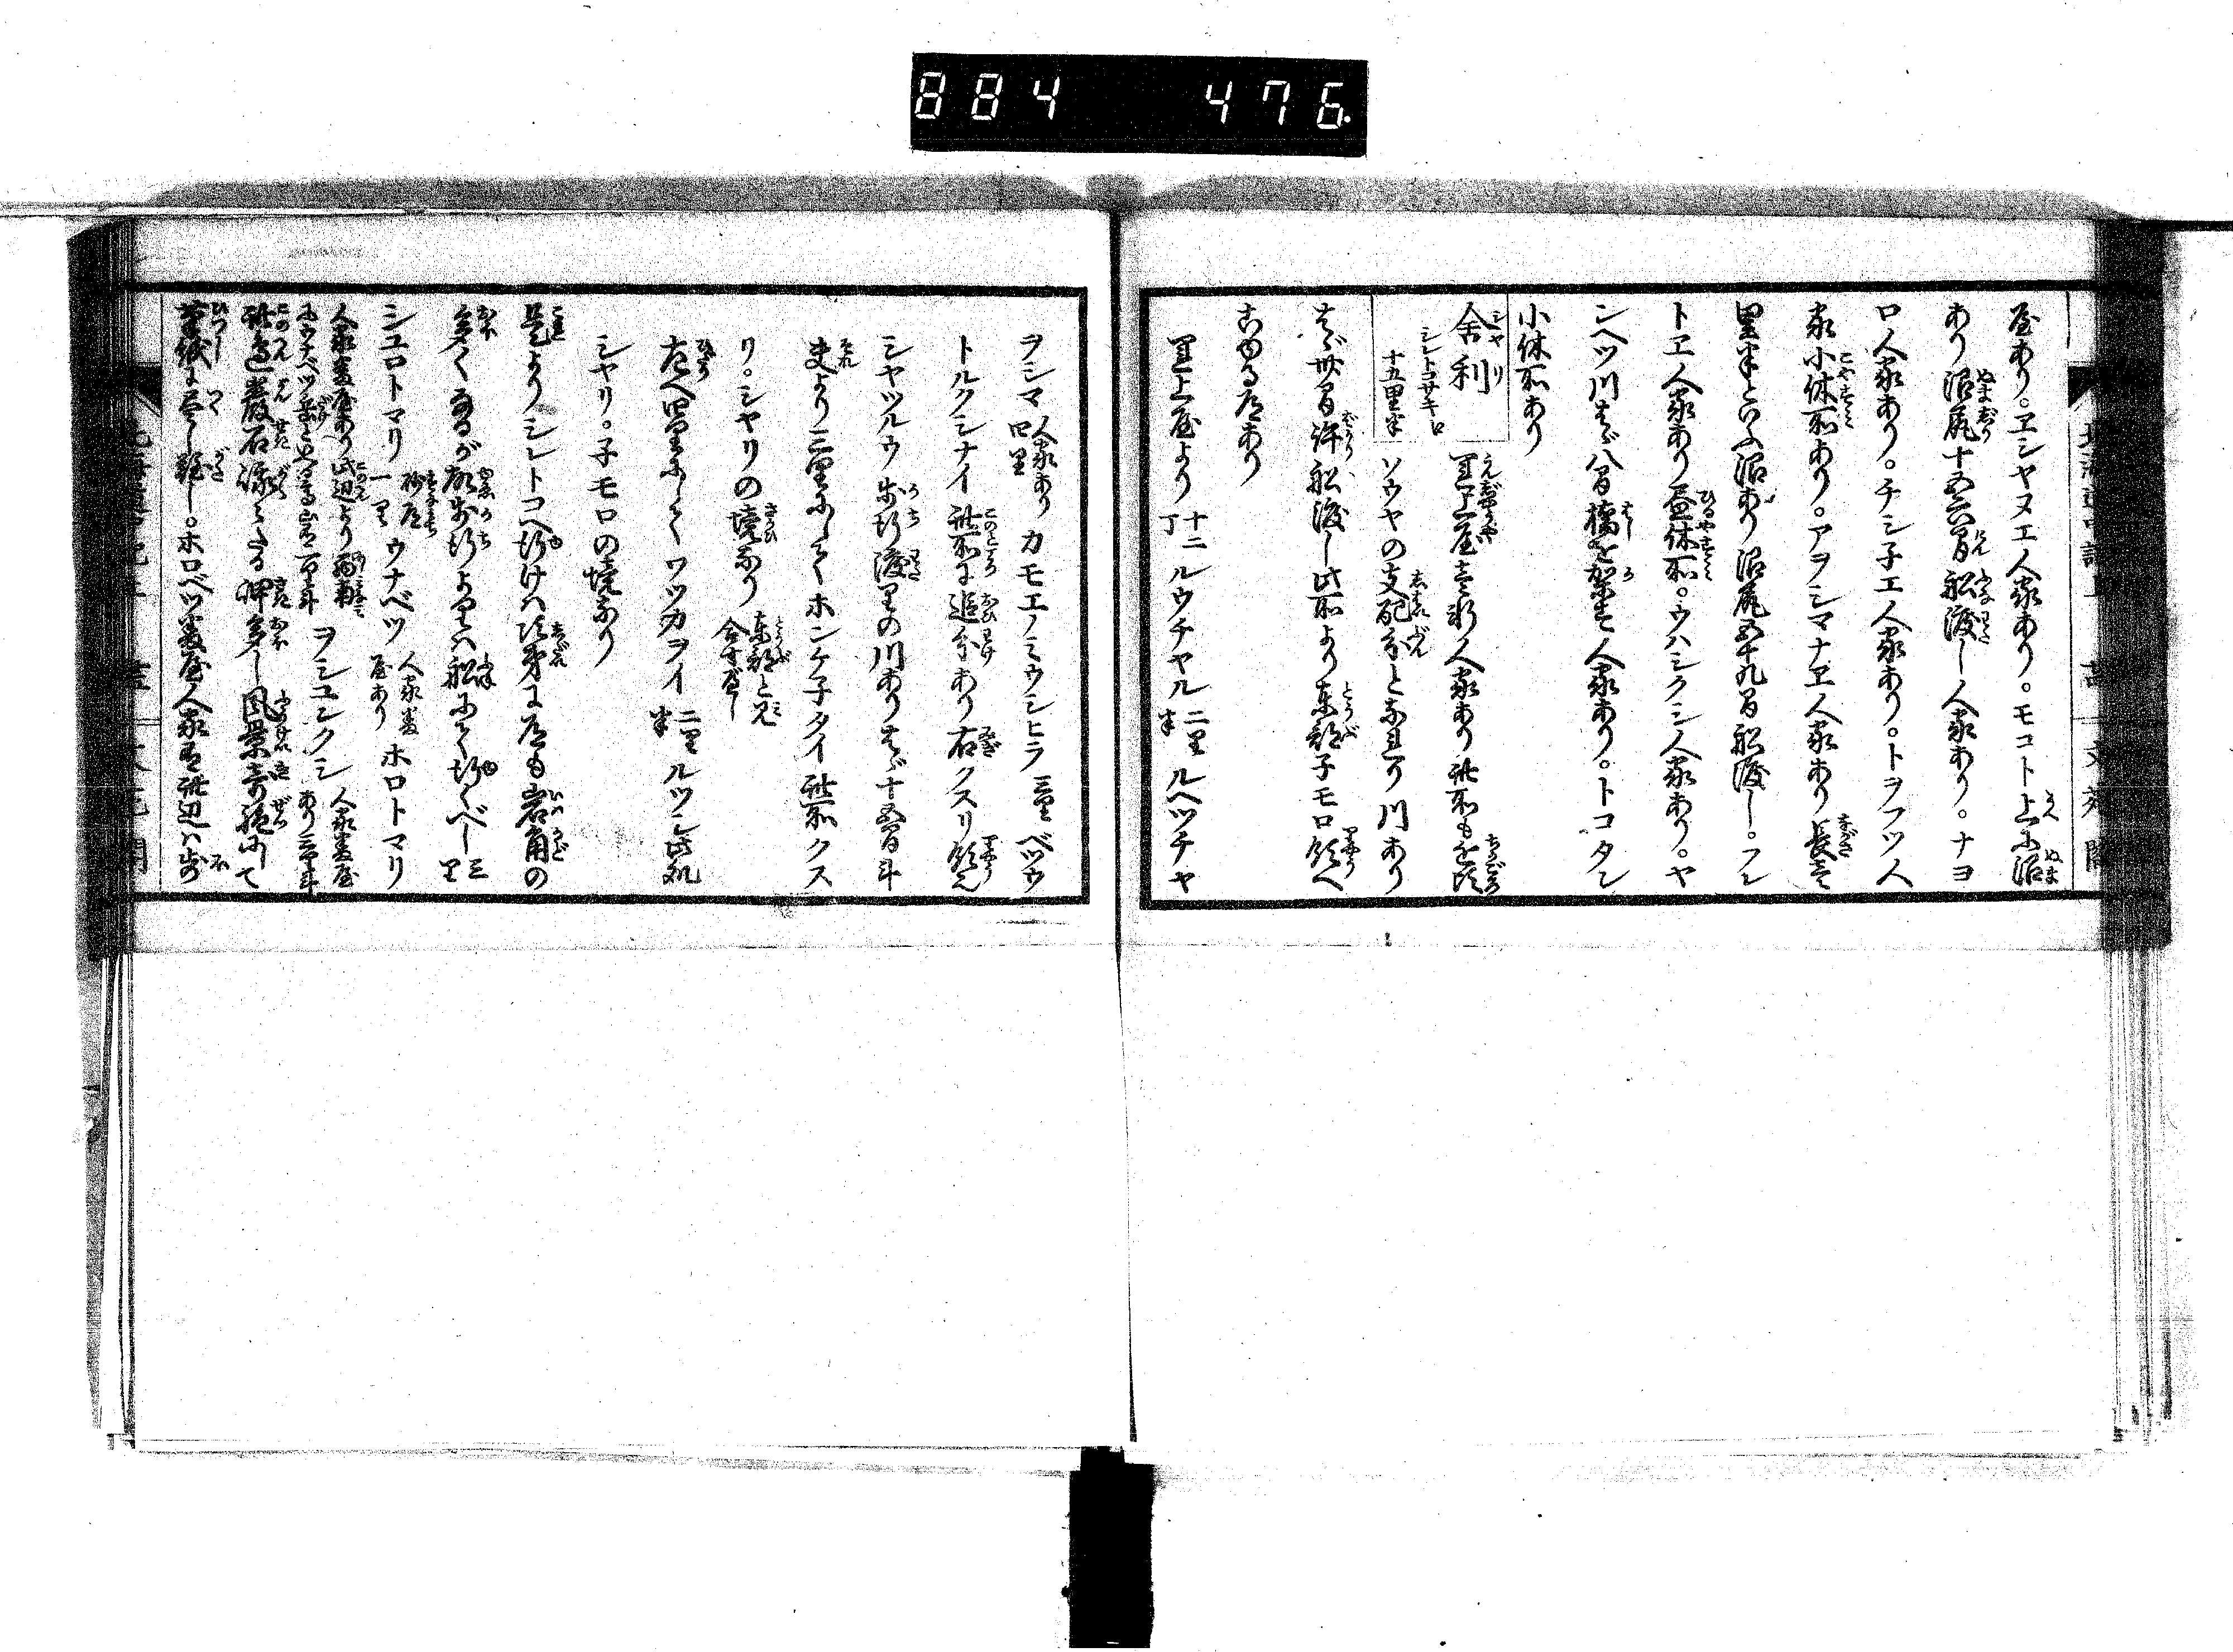 884 476
屋あり。ヱシヤヌエ人家あり。モコト上ニ沼
あり沼尻十五六間船渡し人家あり。ナヨ
ロ人家あり。チシ子エ人家あり。トヲフツ人
家小休所あり。アヲシマナヱ人家あり長サ
里半といふ沼あり沼尻五十九間船渡し。フン
トヱ人家あり昼休所。ウハシクシ人家あり。ヤ
ンヘツ川はゞ八間橋を架す人家あり。トコタン
小休所あり
舎利
シレトコサキヘ
十九里半
運上屋壱軒人家あり此所も近頃
ソウヤの支配分となれり川あり
はゞ廿間許船渡し此所より東部子モロ領へ
出る道あり
運上屋より 十二丁 ルウチヤル 二里半 ルヘツチヤ
ヲシマ 人家あり 四里 カモエノミウシヒラ 三里 ベツウ
トルクシナイ 此所に追分あり 右クスリ領
シヤツルウ 歩行渡りの川あり はゞ十五間斗
夫より三里にしてホンケ子タイ 此所クス
リ。シヤリの境なり 東部と見合せべし
左へ四里にしてワツカヲイ 二里半 ルツシ 此処
シヤリ。子モロの境なり
是よりシレトコへ行けハ次第に道も岩角の
多くなるが故歩行よりハ船にて行くべし 三里
シユロトマリ 一里 砂道 ウナベツ 人家数屋あり ホロトマリ
人家数屋あり此辺より
ヲウナベツ岳 ヲシユンクシ 人家数屋あり三里斗
此辺巌石 岬多し風景奇絶にして
筆紙に尽し難し。ホロベツ数屋人家有此辺ハ歩